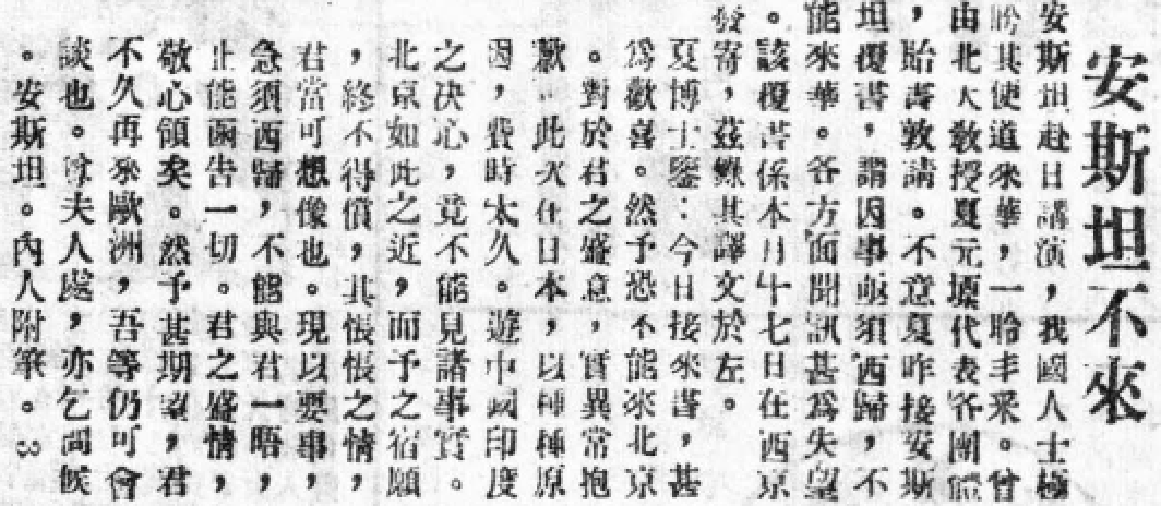 安斯坦不來
安斯坦赴日講演，我國人士極
盼其便道來華，一聆丰采。曾
由北大敎授夏元瑮代表各團體
，貽書敦請。不意夏昨接安斯
坦覆書，謂因事亟須西歸，不
能來華。各方面聞訊甚爲失望
。該覆書係本月廿七日在西京
發寄，茲錄其譯文於左。
夏博士鑒：今日接來書，甚
爲歡喜。然予恐不能來北京
。對於君之盛意，實異常抱
歉。此次在日本，以種種原
因，費時太久。遊中國印度
之决心，竟不能見諸事實。
北京如此之近，而予之宿願
，終不得償，其悵悵之情，
君當可想像也。現以要事，
急須西歸，不能與君一晤，
止能函告一切。君之盛情，
敬心領矣。然予甚期望，君
不久再來歐洲，吾等仍可會
談也。尊夫人處，亦乞問候
。安斯坦。內人附筆。